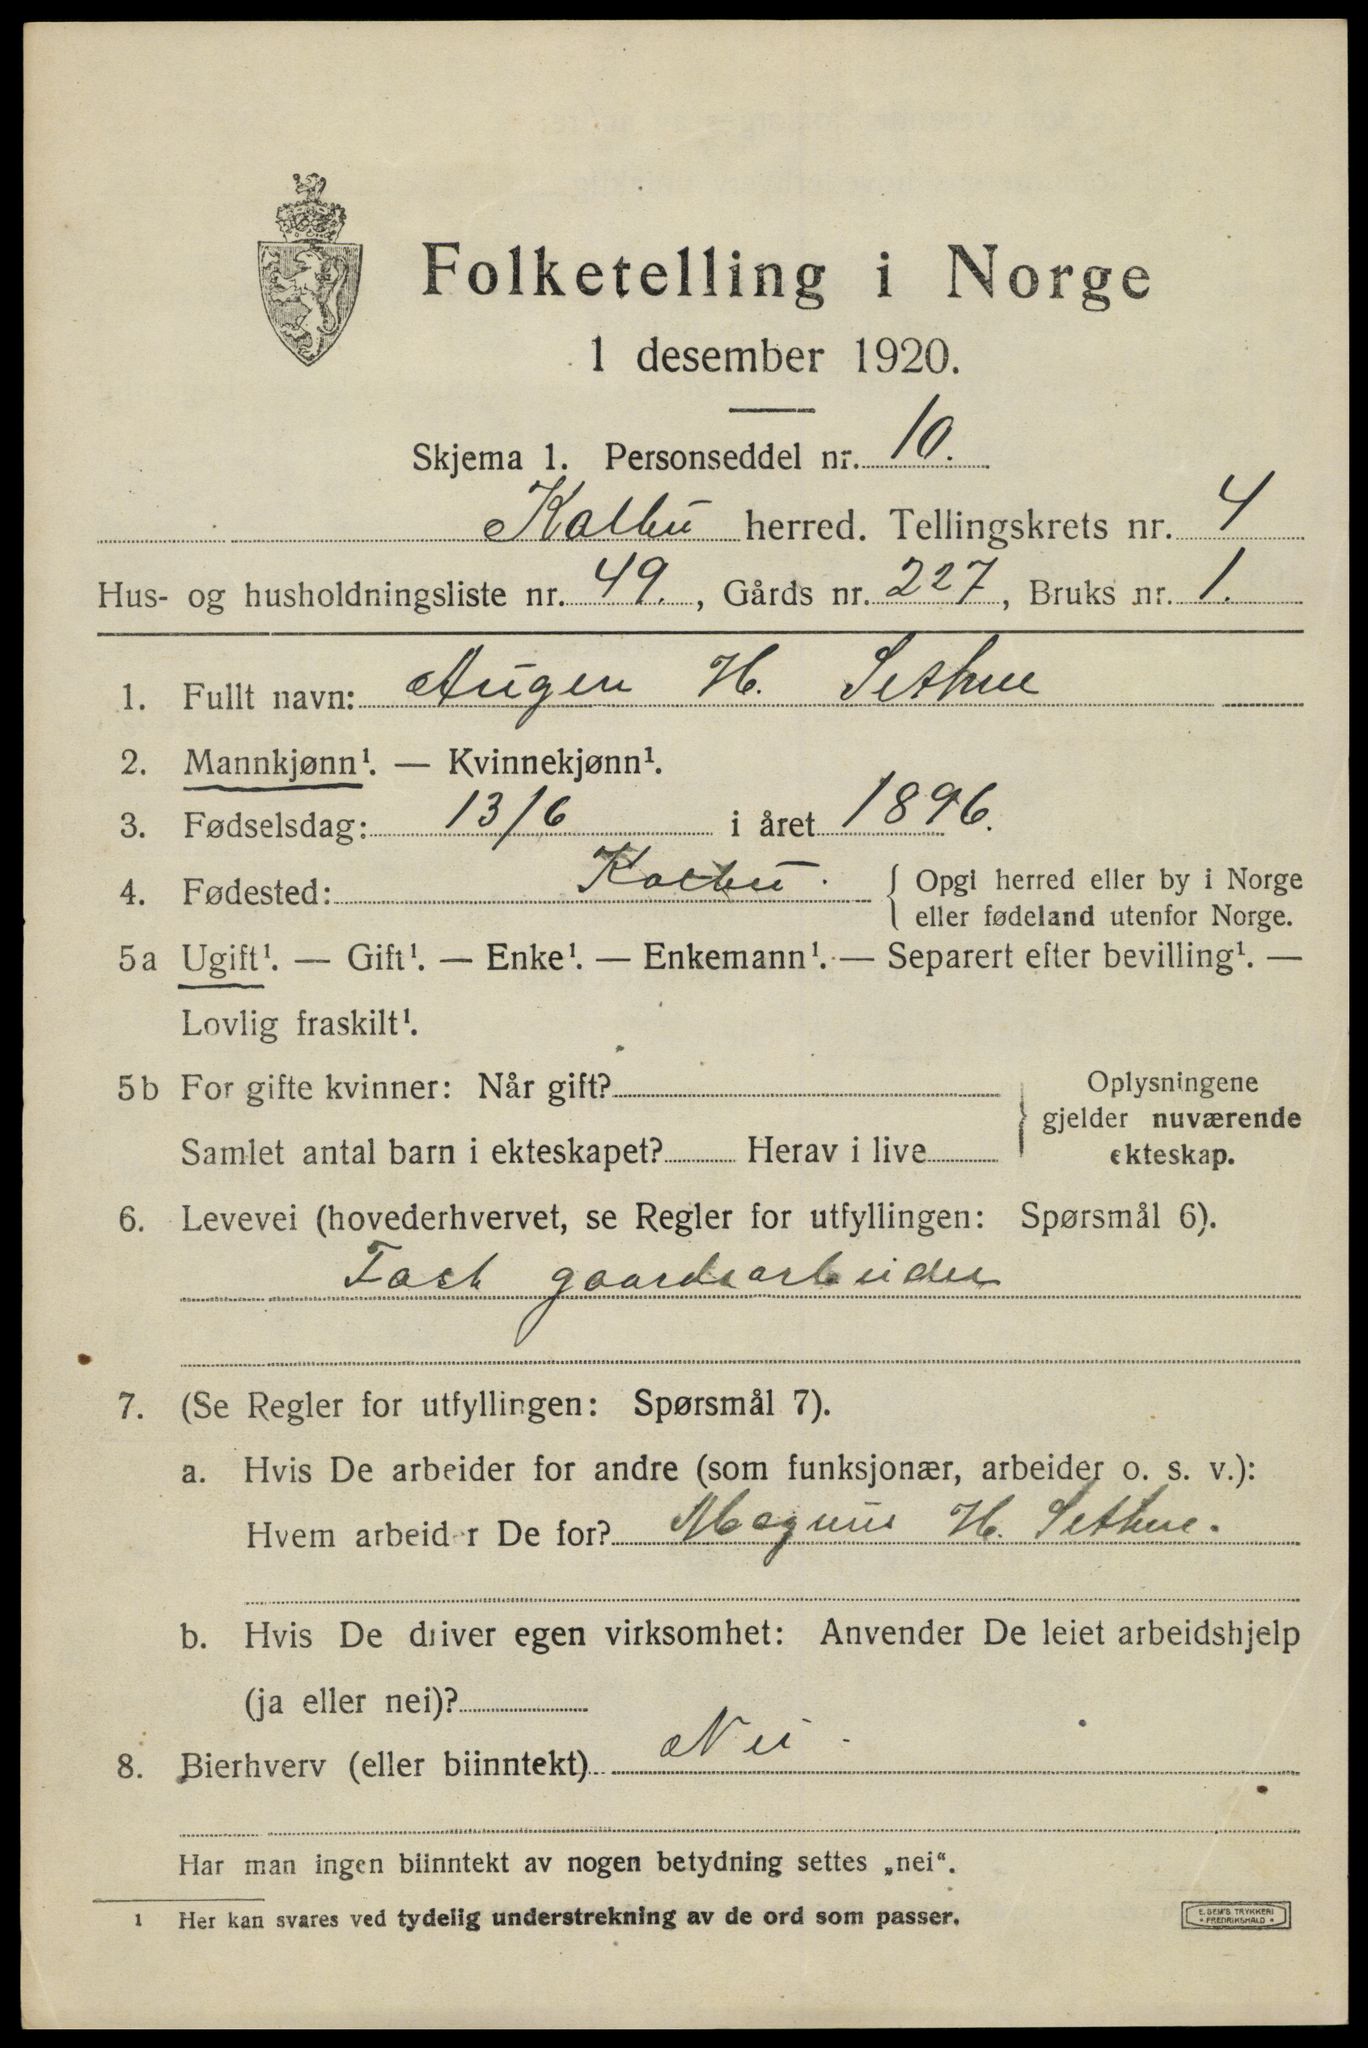 Folketelling i Norge
1 desember 1920.
Skjema 1. Personseddel nr. 10.
Kolbu herred. Tellingskrets nr. 4
Hus- og husholdningsliste nr. 49., Gårds nr. 227, Bruks nr. 1.
1. Fullt navn: Augen H. Sethne
2. Mannkjønn¹. — Kvinnekjønn¹.
3. Fødselsdag: 13/6 i året 1896.
4. Fødested: Kolbu. { Opgi herred eller by i Norge
eller fødeland utenfor Norge.
5a Ugift¹. — Gift¹. — Enke¹. — Enkemann¹. — Separert efter bevilling¹. —
Lovlig fraskilt¹.
5b For gifte kvinner: Når gift?
Samlet antal barn i ekteskapet? Herav i live
} Oplysningene
gjelder nuværende
ekteskap.
6. Levevei (hovederhvervet, se Regler for utfyllingen: Spørsmål 6).
Fast gaardsarbeider
7. (Se Regler for utfyllingen: Spørsmål 7).
a. Hvis De arbeider for andre (som funksjonær, arbeider o. s. v.):
Hvem arbeider De for? Magnus H. Sethne.
b. Hvis De driver egen virksomhet: Anvender De leiet arbeidshjelp
(ja eller nei)?
8. Bierhverv (eller biinntekt) Nei.
Har man ingen biinntekt av nogen betydning settes „nei“.
1 Her kan svares ved tydelig understrekning av de ord som passer.
E. SEM'S TRYKKERI
• FREDRIKSHALD •